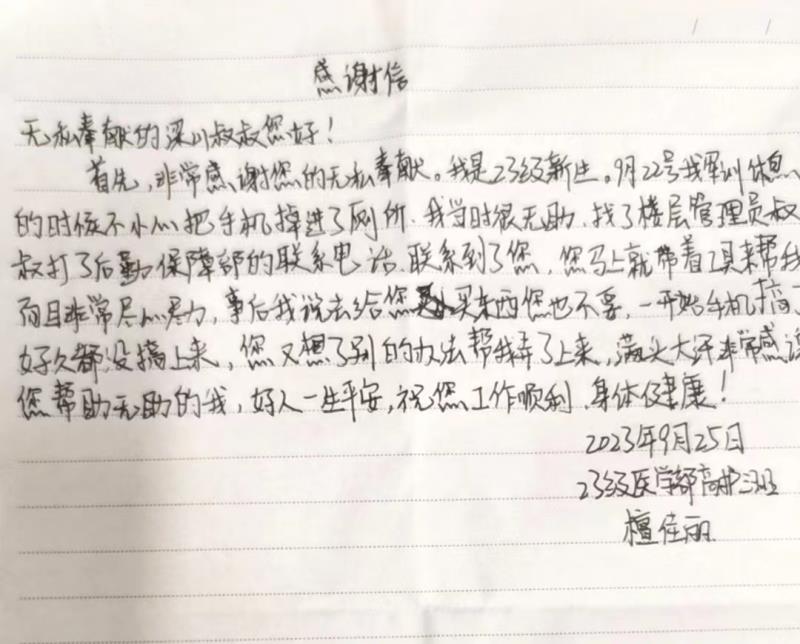 感谢信
无私奉献的梁川叔叔您好！
首先，非常感谢您的无私奉献。我是23级新生。9月22号我军训休息
的时候不小心把手机掉进了厕所．我当时很无助．找了楼层管理员叔
叔打了后勤保障部的联系电话．联系到了您，您马上就带着工具来帮我
而且非常尽心尽力，事后我说去给您买东西您也不要，一开始手机搞了
好久都没搞上来，您又想了别的办法帮我弄了上来，满头大汗非常感谢
您帮助无助的我，好人一生平安，祝您工作顺利．身体健康！
2023年9月25日
23级医学部高护三班
檀佳丽